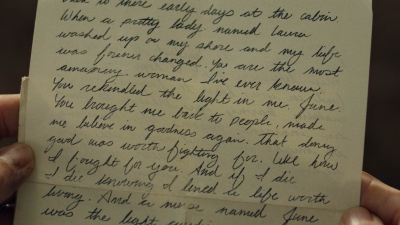 back to those early days at the cabin.
When a pretty lady named Laura
washed up on my shore and my life
was forever changed. You are the most
amazing woman I've ever known.
You rekindled the light in me, June.
You brought me back to people, made
me believe in goodness again. That doing
good was worth fighting for. Like how
I fought for you. And if I die
I die knowing I lived a life worth
living. And a nurse named June
was the light